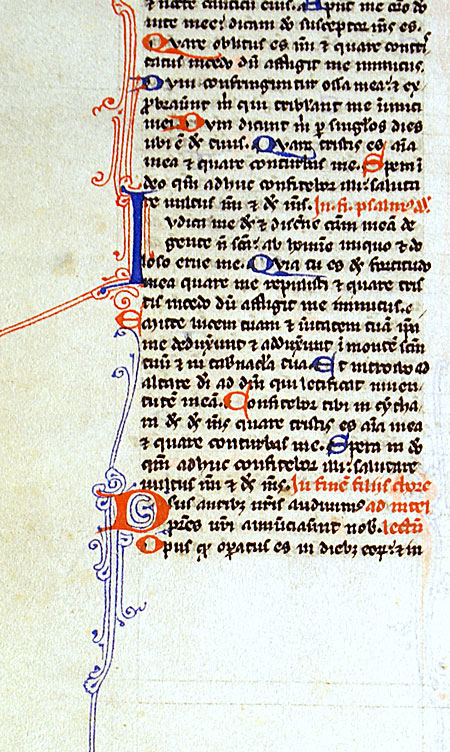 & nocte canticū eius. Apud me or̄o do
uite mee: dicam dō susceptor m̄s es.
Quare oblitus es m̄i & quare contri
tatus incedo dū affligit me inimicus.
Dum confringuntur ossa mea: & ex
p̱braūnt m̄ qui tribłant me inimici
mei. Dum dicunt m̄ ꝑ singłos dies
ubi ē ds̄ tuus. Quare tristis es aīa
mea & quare conturbas me. Spera ī
deo qm̄ adhuc confitebor illi: saluta
re uultus m̄i & ds̄ m̄s. In fi. psalmꝰ dd̄.
Iudica me ds̄ & discerne cām meā de
gente n̄ scā: ab homine iniquo & do
loso erue me. Quia tu es ds̄ fortitudo
mea quare me repulisti & quare tris
tis incedo dū affligit me inimicus.
Emitte lucem tuam & ūitatem tuā ip̄a
me deduxerunt & adduxerunt ī montē scm̄
tuū & in tab̄nacła tua. Et introibo ad
altare dī ad dm̄ qui letificat iuuen
tutē meā. Confitebor tibi in cytha
ra ds̄ ds̄ m̄s quare tristis es aīa mea
& quare conturbas me. Spera in dō
qm̄ adhuc confitebor illi: salutare
uultus m̄i & ds̄ m̄s. In finē filiis chore
Deus auribꝫ nr̄is audiuimꝰ ad intel
pr̄es nr̄i annūciaūnt nob̄. lectū
Opus qd̄ oꝑatus es in diebꝫ eoꝝ: & in